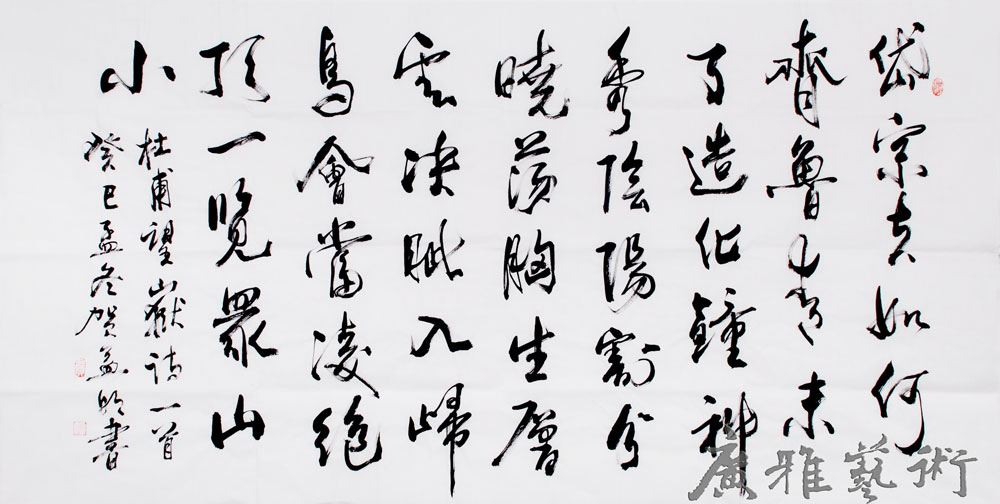 岱宗夫如何
齊魯青未
了造化鐘神
秀陰陽割昏
曉蕩胸生層
雲决眦入歸
鳥會當凌絕
頂一覽眾山
小
杜甫望嶽詩一首
癸巳孟冬賀書
廣雅藝術